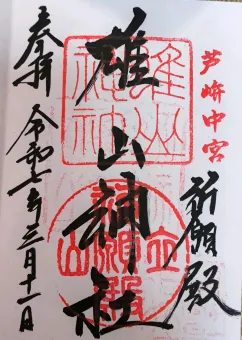 芦峅中宮
祈願殿
雄山神社
雄山
神社
立山
祈願殿
奉拝
令和年三月十一日